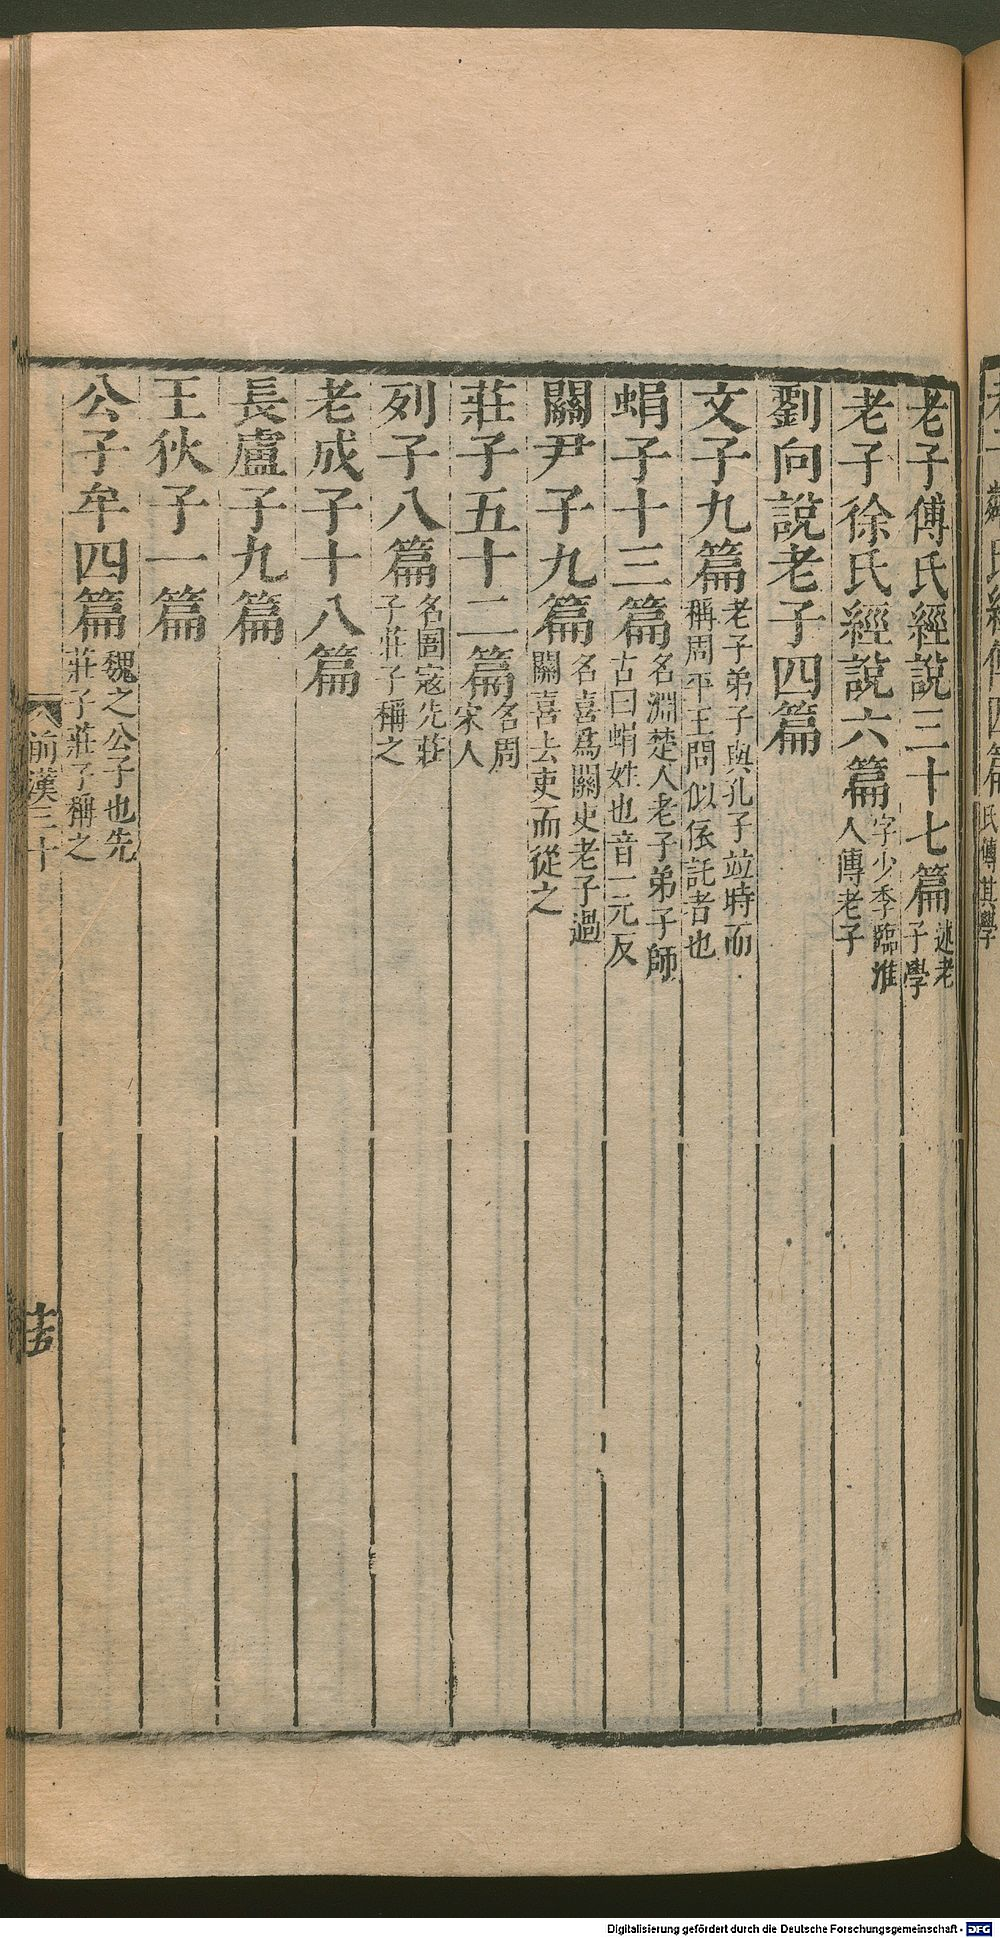 老子傅氏經說三十七篇 述老子學
老子徐氏經說六篇 字少季臨淮人傳老子
劉向說老子四篇
文子九篇 老子弟子與孔子竝時而稱周平王問似依託者也
蜎子十三篇 名淵楚人老子弟子師古曰蜎姓也音一元反
關尹子九篇 名喜爲關吏老子過關喜去吏而從之
莊子五十二篇 名周宋人
列子八篇 名圄寇先莊子莊子稱之
老成子十八篇
長盧子九篇
王狄子一篇
公子牟四篇 魏之公子也先莊子莊子稱之
前漢三十
氏經傳四篇 氏傳其學
Digitalisierung gefördert durch die Deutsche Forschungsgemeinschaft - DFG